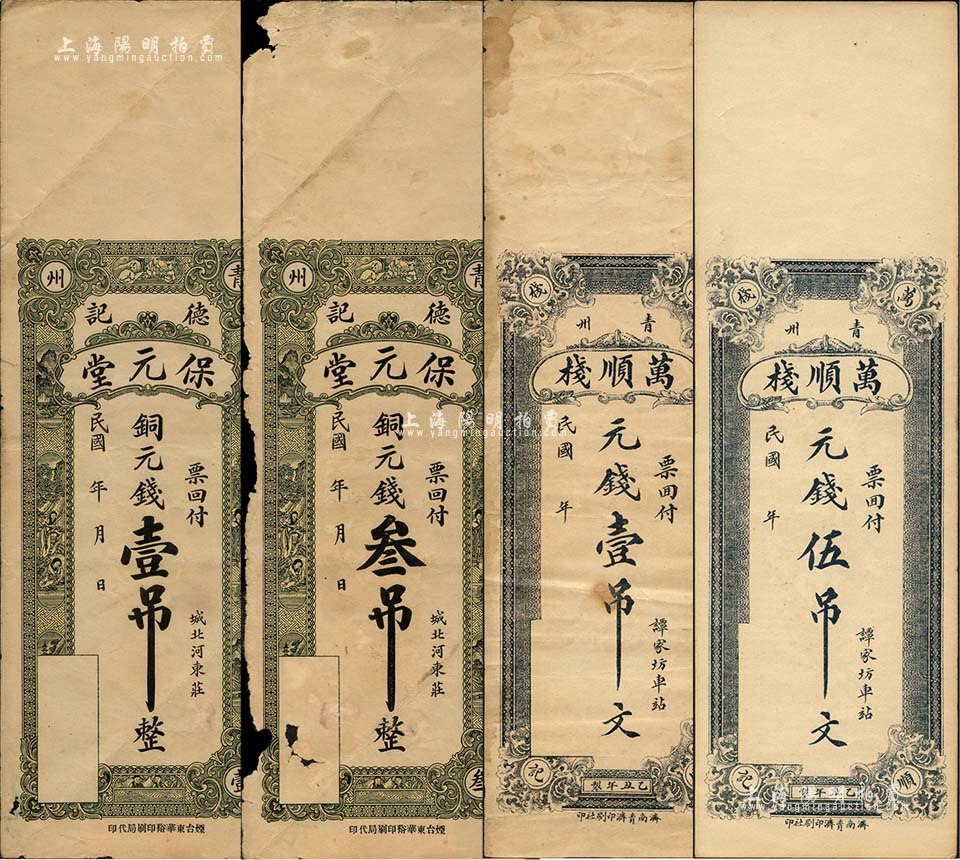 上海陽明拍賣
www.yangmingauction.com
青州
德記
保元堂
票回付
銅元錢壹吊整
民國 年 月 日
城北河東莊
壹
煙台東華裕印刷局代印
青州
德記
保元堂
票回付
銅元錢叁吊整
民國 年 月 日
城北河東莊
叁
煙台東華裕印刷局代印
上海陽明拍賣
www.yangmingauction.com
棧
青州
萬順棧
票回付
元錢壹吊文
民國 年
譚家坊車站
記
乙丑年製
濟南青濟印刷社印
棧
青州
萬順棧
票回付
元錢伍吊文
民國 年
譚家坊車站
順記
乙丑年製
濟南青濟印刷社印
上海陽明拍賣
www.yangmingauction.com